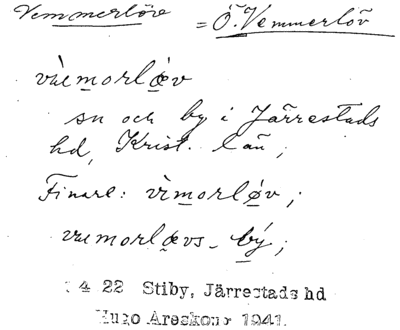 Vemmerlöv = Ö. Vemmerlöv
væ̀morlǿv
sn och by i Järrestads
hd, Krist. län;
Finare: vèmorlǿv;
væmorlǿvs-bý;
4 22 Stiby, Järrestads hd
Hugo Areskoug 1941.